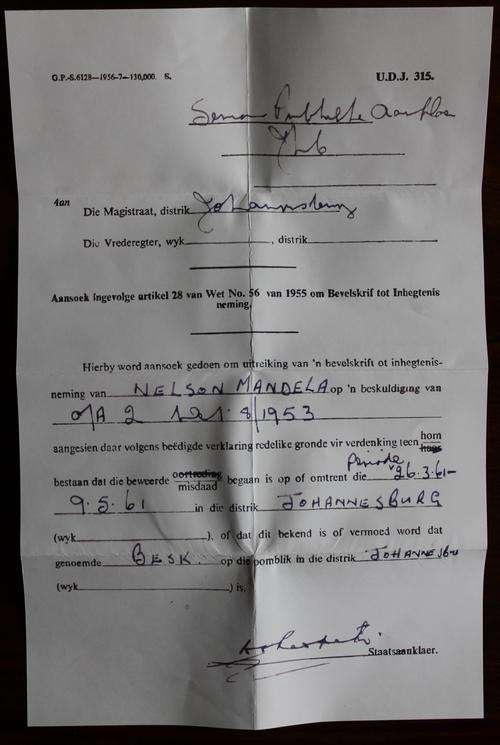 G.P.-S.6128—1956-7—130,000. S.
U.D.J. 315.
Publieke Aanklaer
Jhb
Aan
Die Magistraat, distrik Johannesburg
Die Vrederegter, wyk , distrik
Aansoek ingevolge artikel 28 van Wet No. 56 van 1955 om Bevelskrif tot Inhegtenis
neming.
Hierby word aansoek gedoen om uitreiking van 'n bevelskrif ot inhegtenis-
neming van NELSON MANDELA op 'n beskuldiging van
o/A 2 Wet 8/1953
aangesien daar volgens beëdigde verklaring redelike gronde vir verdenking teen hom
haar
bestaan dat die beweerde oortreding
misdaad begaan is op of omtrent die periode 26.3.61-
9.5.61 in die distrik JOHANNESBURG
(wyk ), of dat dit bekend is of vermoed word dat
genoemde BESK. op die oomblik in die distrik JOHANNESBU
(wyk ) is.
Staatsaanklaer.